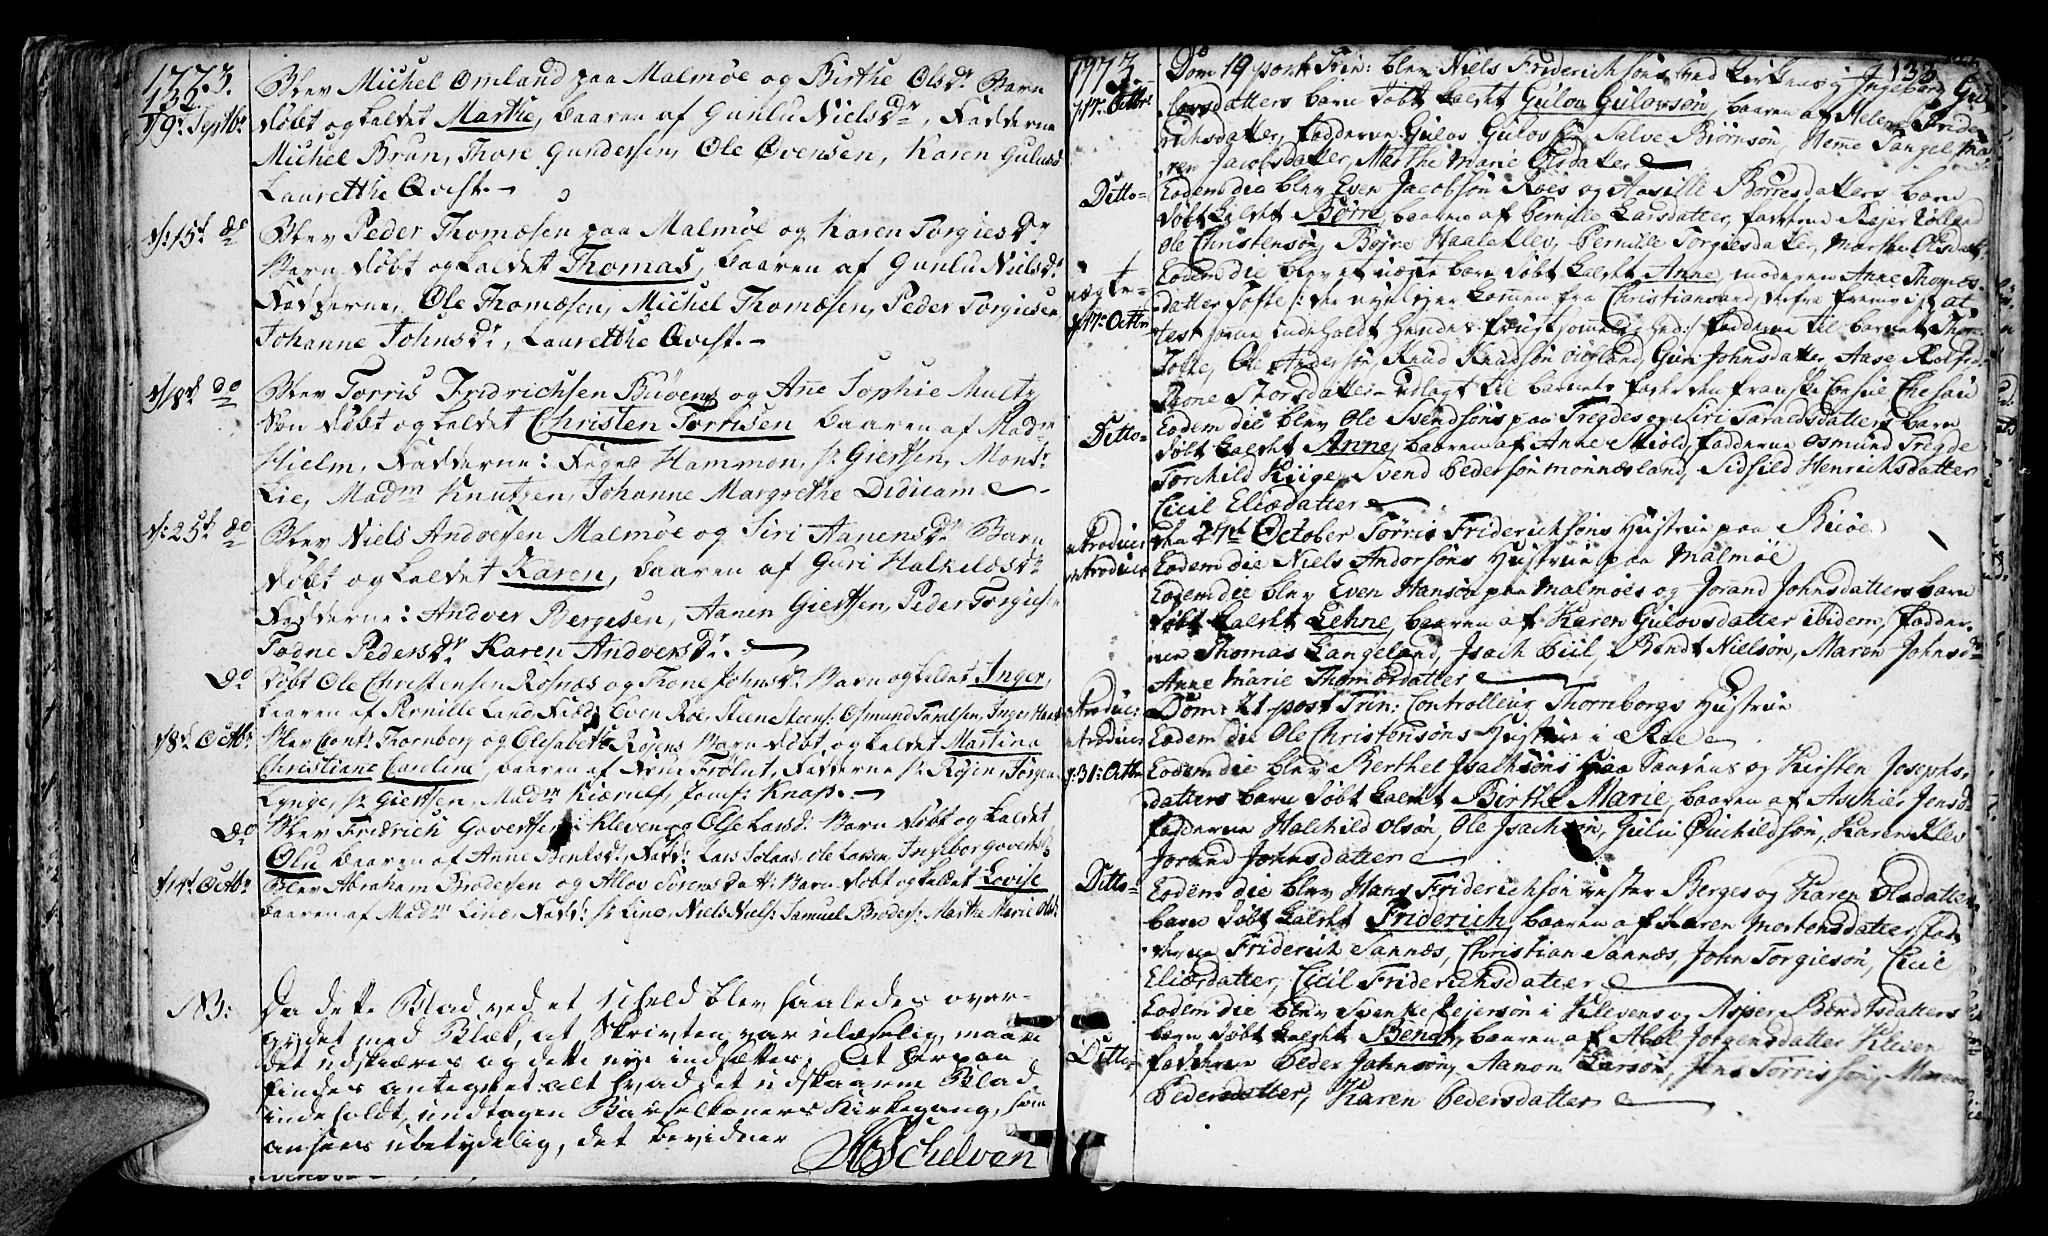 1773.
132.
d/9d Septbr
Blev Michel Omland paa Malmøe og Birthe Olsdr Barn
døbt og kaldet Marthe, baaren af Gunlu Nielsdr, Fadderne
Michel Brun, Thore Gundersen, Ole Øvensen, Karen Gulovsd
Laurethe Qvist.
d:15d do
Blev Peder Thomæsen paa Malmøe og Karen Torgiesdr
Barn døbt og kaldet Thomas, baaren af Gunlu Nielsdr
Fadderne, Ole Thomæsen, Michel Thomæsen, Peder Torgiesen
Johanne Johnsdr, Laurethe Qvist.
d/18d do
Blev Torris Fridrichsen Buöens og Añe Sophie Multz
Søn døbt og kaldet Christen Torrisen baaren af Madm
Hielm, Fadderne: Feged Hammon, Sr Giertsen, Monsr
Lie, Madm Knutzen, Johanne Margrethe Didicam
d:25d do
Blev Niels Andversen Malmøe og Siri Aanensdr Barn
døbt og kaldet Karen, baaren af Guri Halkeldsdr
Fadderne: Andver Bergesen, Aanen Giertsen, Peder Torgiesen
Todne Pedersdr Karen Andversdr.
Do
døbt Ole Christensen Rosnæs og Thone Johnsdr Barn og kaldet Inger,
baaren af Pernille Land, Fadd: Even Roe, Steen Steens: Osmund Tarelsen, Inger
d8d Octbr
Blev Cont: Thornborg og Elisabeth Røyens Barn døbt og kaldet Martina
Christiane Caroline, baaren af Frue Frølut, Fadderne Sr Røyen, Jørgen
Lynge, Sr Giertsen, Madm Kiærulf, Jomf: Knap.
Do
Blev Fredrich Govertsen i Kleven og Else Larsd: Barn døbt og kaldet
Olu baaren af Anne Bentsd:, Fadd: Lars Solaas, Ole Larsen, Ingebor Govertsd
d14d Octbr
Blev Abraham Brodersen og Allov Sørensdatt: Barn døbt og kaldet Lovise
baaren af Madm Lind, Fadd: Sr Lind, Niels Niels: Samuel Broders: Marthe Marie Olsd:
NB:
Da dette Blad ved et Uheld blev saaledes over-
gydet med Blæk, at Skrivten var ulæselig, maatte
det udskæres og dette nye indsættes. At herpaa
findes antegnet alt hvad det udskaarne Blad
indeholdt, undtagen Barselkoners Kirkegang, som
ansees ubetydelig, det bevidner
Schelven
1773.
133
d17de Octbr
Dom 19 post Trin: blev Niels Friderichsöns ved Kirken og Ingebord Gu
lovsdatters barn døbt kaldet Gulov Gulovsön, baaren af Helene Fride
richsdatter, fadderne Gulov Gulovsen Salve Biörnsön, Heme Tangel Ma
ren Jacobsdatter, Marthe Marie Olsdatter
Ditto-
Eodem die blev Even Jacobsön Roes og Aasille Börresdatters barn
døbt kaldet Börre, baaren af Pernille Larsdatter, fadderne Rejer
Ole Christensön, Börre Haaleklev, Pernille Torgiesdatter, Marthe Olsdatt
uægte
d17de Octbr
Eodem die blev et uægte barn døbt kaldet Anne, moderen Anne Thomes-
datter Tofte /: der nyeligen kommen fra Christiansand, derfra fremviiste at
test som indeholdt hendes frugtsomelighed:/ fadderne til barnet Thore
Tofte, Ole Andersön, Knud Knudsön öieland, Guri Johnsdatter, Aase Rolfsd
Thone Thorsdatter - udlagt til barnets fader den franske Consul Chesau
Ditto-
Eodem die blev Ole Svendsöns paa Tregdes og Siri Taraldsdatters barn
døbt kaldet Anne, baaren af Anne Skiold, fadderne Osmund Tregde
Torchild Kiige, Svend Pedersön monnæsland, Sidsild Henrichsdatter
Cicil Eliædatter
Introduc:
dha 24de October Törris Friderichsöns Hustrue paa Buöe.
Introduc:
Eodem die Niels Andorsöns Hustrue paa Malmöe
Eodem die blev Even Hansön paa Malmöes og Jorand Johnsdatters barn
døbt kaldet Lehne, baaren af Karen Gulovsdatter ibidem, fadder-
ne Thomas Langeland, Isach Buil, Bendt Nielsön, Maren Johnsdr
Anne Marie Thomædatter
Introduc:
Dom: 21 post Trin: Controlleur Thornborgs Hustrue
Introduc:
Eodem die Ole Christensöns Hustrue i Roe
d:31: Octbr
Eodem die blev Berthel Isachsöns paa Sannæs og Kirsten Josephs-
datters barn döbt kaldet Birthe Marie, baaren af Aschier Jensd
fadderne Halchild Olsön, Ole Isachsön, Guliv Öuchildsön, Karen Klev
Jorand Johnsdatter
Ditto-
Eodem die blev Hans Friderichsön vester Berges og Karen Olsdatter
barn döbt kaldet Friderich, baaren af Karen Mortensdatter, fad-
derne Friderich Sannæs, Christian Sannæs, John Torgiesön, Cicil
Eliædatter, Cicil Friderichsdatter
Ditto-
Eodem die blev Svenke Rejersön i Klevens og Asper Bendtsdatters
barn döbt kaldet Bendt, baaren af Abel Jörgensdatter Kleven
fadderne Peder Jahnsön, Aanon Larsön, Jens Törrissön, Maren
Pedersdatter, Karen Pedersdatter